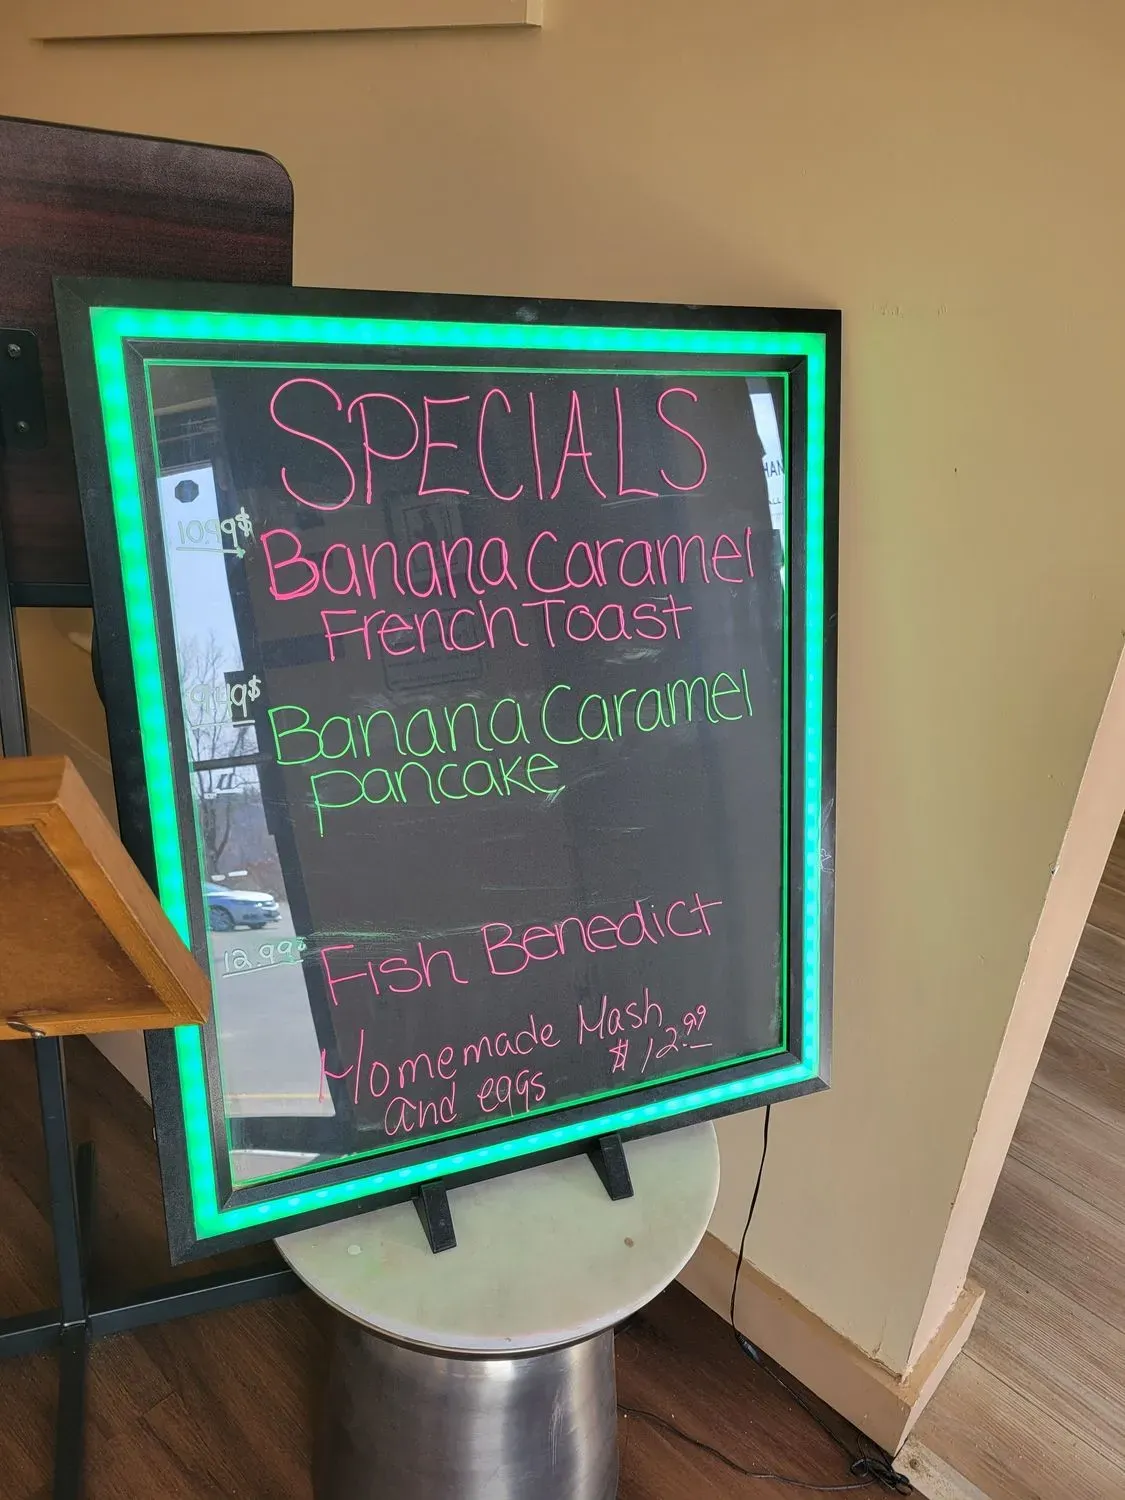 SPECIALS
10.99$ Banana Caramel
French Toast
9.49$ Banana Caramel
pancake
12.99$ Fish Benedict
Homemade Hash
$12.99
and eggs